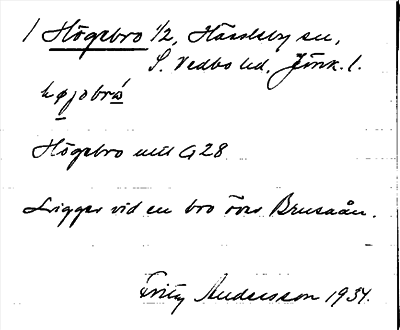 / Högebro 1/2, Hässleby sn,
S. Vedbo hd. Jönk. l.
højobrȯ
Högebro mtl G28
Ligger vid en bro över Brusaån.
Fritz Andersson 1934.